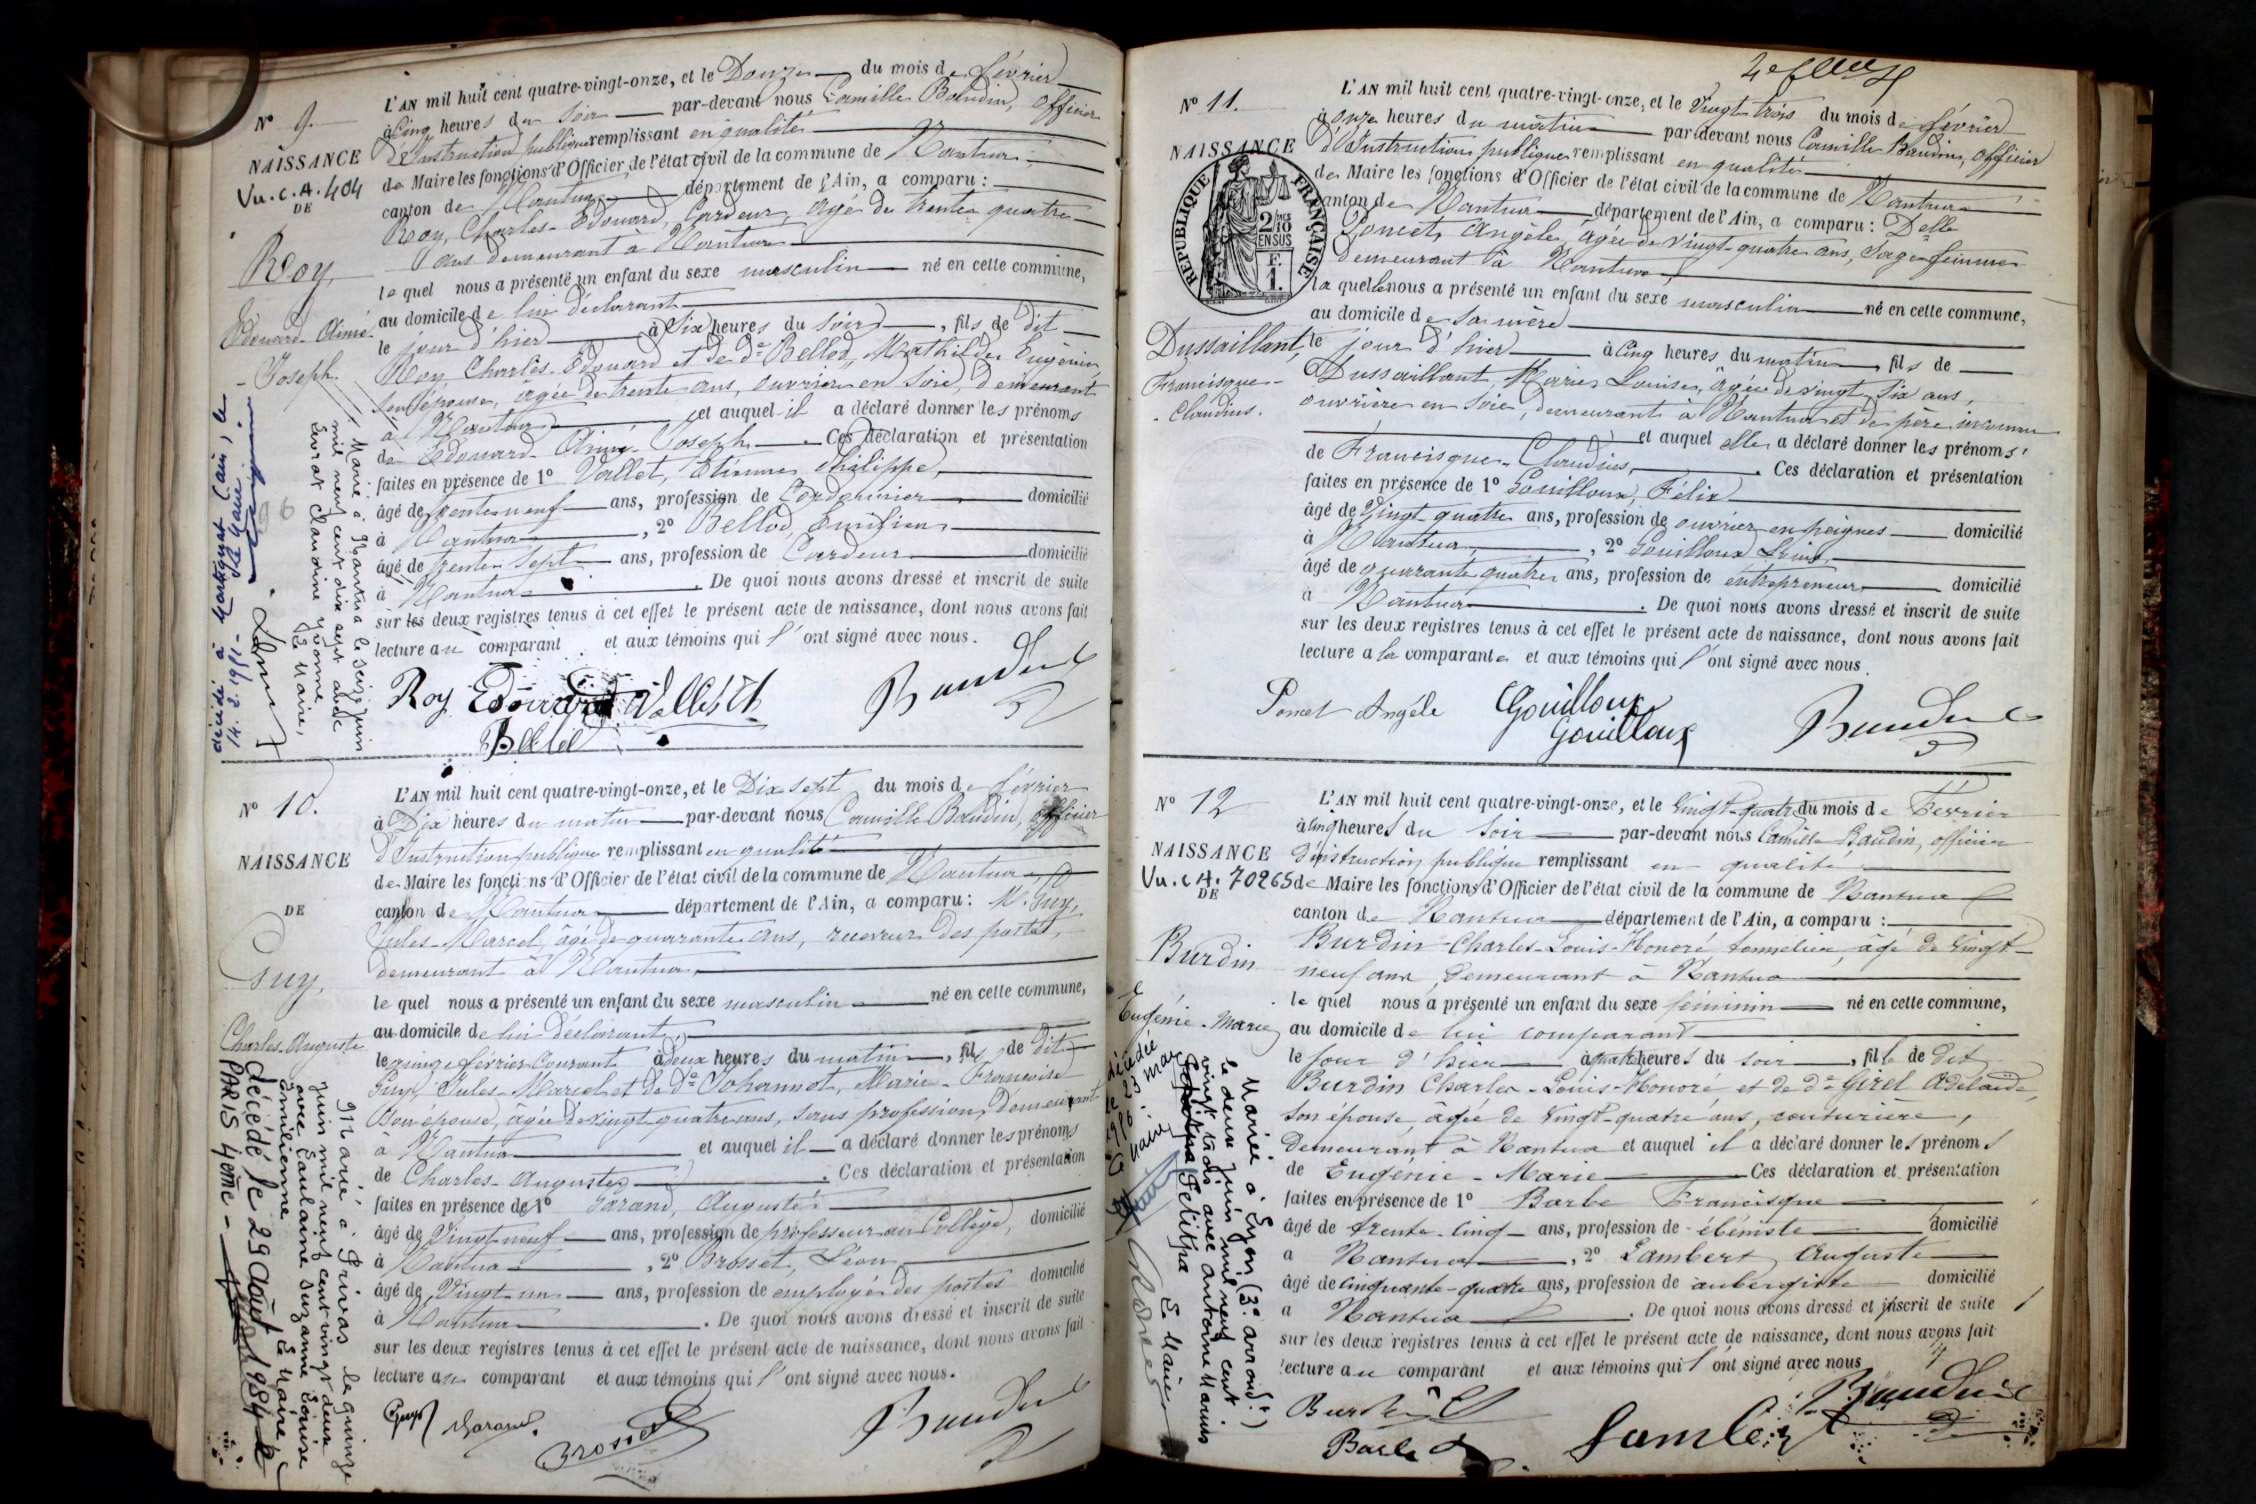 N° 9.
NAISSANCE
Vu. C. A. 404
DE
Roy,
Edouard-Aimé
-Joseph.
L'AN mil huit cent quatre-vingt-onze, et le Douze du mois de février
à Cinq heures du soir par-devant nous Camille Baudin, officier
d'Instruction publique remplissant en qualité
de Maire les fonctions d'Officier de l'état civil de la commune de Nantua
canton de Nantua département de l'Ain, a comparu :
Roy, Charles-Edouard, Cardeur, âgé de trente quatre
ans demeurant à Nantua
lequel nous a présenté un enfant du sexe masculin né en cette commune,
au domicile de lui déclarant
le jour d'hier à Six heures du soir, fils de dit
Roy Charles-Edouard et de de Bellod, Mathilde Eugénie
son épouse, âgée de trente ans, ouvrière en soie, demeurant
à Nantua et auquel il a déclaré donner les prénoms
de Edouard-Aimé-Joseph. Ces déclaration et présentation
faites en présence de 1° Vallet, Etienne Philippe,
âgé de trente neuf ans, profession de Cordonnier domicilié
à Nantua, 2° Bellod, Emilien
âgé de trente sept ans, profession de Cardeur domicilié
à Nantua. De quoi nous avons dressé et inscrit de suite
sur les deux registres tenus à cet effet le présent acte de naissance, dont nous avons fait
lecture au comparant et aux témoins qui l'ont signé avec nous.
Roy Edouard Vallet Et Baudin
Bellod
Marié à Nantua le seize juin
mil neuf cent dix sept avec
Levrat Claudine Yvonne
Le Maire,
décédé à Martignat (Ain) le
14. 2. 1951 - Le Maire
N° 10.
NAISSANCE
DE
Guy,
Charles-Auguste
L'AN mil huit cent quatre-vingt-onze, et le Dix sept du mois de février
à Dix heures du matin par-devant nous Camille Baudin, officier
d'Instruction publique remplissant en qualité
de Maire les fonctions d'Officier de l'état civil de la commune de Nantua
canton de Nantua département de l'Ain, a comparu : M. Guy,
Jules-Marcel, âgé de quarante ans, receveur des postes,
demeurant à Nantua
lequel nous a présenté un enfant du sexe masculin né en cette commune,
au domicile de lui déclarant,
le quinze février courant à deux heures du matin, fils de dit
Guy, Jules-Marcel et de de Johannot, Marie-Françoise
son épouse, âgée de vingt quatre ans, sans profession, demeurant
à Nantua et auquel il a déclaré donner les prénoms
de Charles-Auguste. Ces déclaration et présentation
faites en présence de 1° Garand, Auguste
âgé de Vingt neuf ans, profession de professeur au Collège, domicilié
à Nantua, 2° Brosset, Léon
âgé de Vingt un ans, profession de employé des postes domicilié
à Nantua. De quoi nous avons dressé et inscrit de suite
sur les deux registres tenus à cet effet le présent acte de naissance, dont nous avons fait
lecture au comparant et aux témoins qui l'ont signé avec nous.
Guy Garand Brosset Baudin
Marié à Privas le quinze
juin mil neuf cent vingt deux
avec Laulanne Suzanne Louise
Emilienne Le Maire
décédé le 29 août 1984
PARIS 4ème
N° 11.
NAISSANCE
REPUBLIQUE FRANÇAISE
2/10 EN SUS
F. 1.
Dussaillant,
Francisque-
-Claudius.
L'AN mil huit cent quatre-vingt-onze, et le Vingt trois du mois de février
à onze heures du matin par-devant nous Camille Baudin, officier
d'Instruction publique remplissant en qualité
de Maire les fonctions d'Officier de l'état civil de la commune de Nantua
canton de Nantua département de l'Ain, a comparu : Delle
Poncet, Angèle, âgée de vingt quatre ans, Sage-femme
demeurant à Nantua,
laquelle nous a présenté un enfant du sexe masculin né en cette commune,
au domicile de sa mère
le jour d'hier à Cinq heures du matin, fils de
Dussaillant, Marie Louise, âgée de vingt six ans,
ouvrière en soie, demeurant à Nantua et de père inconnu
et auquel elle a déclaré donner les prénoms
de Francisque-Claudius. Ces déclaration et présentation
faites en présence de 1° Gouilloux, Félix
âgé de Vingt quatre ans, profession de ouvrier en peignes domicilié
à Nantua, 2° Gouilloux Louis
âgé de quarante quatre ans, profession de entrepreneur domicilié
à Nantua. De quoi nous avons dressé et inscrit de suite
sur les deux registres tenus à cet effet le présent acte de naissance, dont nous avons fait
lecture a la comparante et aux témoins qui l'ont signé avec nous.
Poncet Angèle Gouilloux
Gouilloux Baudin
N° 12
NAISSANCE
Vu. C. A. 70265
DE
Burdin
Eugénie-Marie
L'AN mil huit cent quatre-vingt-onze, et le Vingt-quatre du mois de Février
à Cinq heures du soir par-devant nous Camille Baudin, officier
d'instruction publique remplissant en qualité
de Maire les fonctions d'Officier de l'état civil de la commune de Nantua
canton de Nantua département de l'Ain, a comparu :
Burdin Charles-Louis-Honoré tonnelier, âgé de vingt-
neuf ans, demeurant à Nantua
lequel nous a présenté un enfant du sexe féminin né en cette commune,
au domicile de lui comparant
le jour d'hier à quatre heures du soir, fille de dit
Burdin Charles-Louis-Honoré et de de Girel Adélaïde,
son épouse, âgée de vingt-quatre ans, couturière,
demeurant à Nantua et auquel il a déclaré donner les prénoms
de Eugénie-Marie Ces déclaration et présentation
faites en présence de 1° Barbe Francisque
âgé de trente-cinq ans, profession de ébéniste domicilié
a Nantua, 2° Lambert Auguste
âgé de cinquante-quatre ans, profession de aubergiste domicilié
a Nantua. De quoi nous avons dressé et inscrit de suite
sur les deux registres tenus à cet effet le présent acte de naissance, dont nous avons fait
lecture au comparant et aux témoins qui l'ont signé avec nous
Burdin Baudin
Barbe Lambert
Mariée à Lyon (3e arrondt)
le deux juin mil neuf cent
vingt trois avec Antoine Marius
Petitpa Le Maire
décédée
le 23 mai